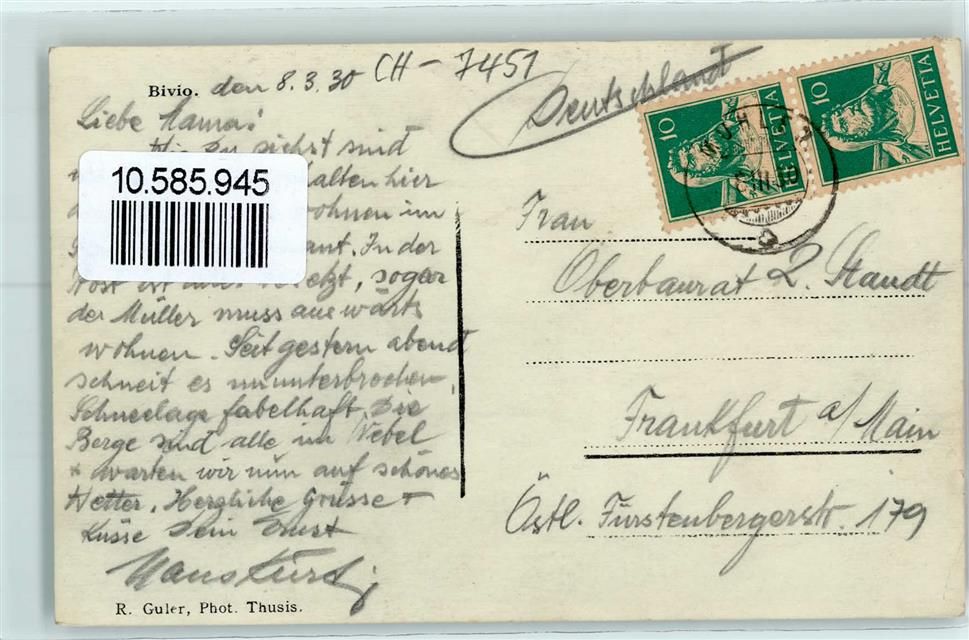 Bivio. den 8.3.30 CH - 7451
Deutschland
Liebe Mama!
Wie Du siehst sind
halten hier
wohnen im
In der
Post ist alles besetzt, sogar
der Müller muss auswärts
wohnen. Seit gestern abend
schneit es ununterbrochen.
Schneelage fabelhaft. Die
Berge sind alle im Nebel
+ warten wir nun auf schönes
Wetter. Herzliche Grüsse +
Küsse Dein Ernst
Hans Kurt
R. Guler, Phot. Thusis.
10.585.945
10 HELVETIA
10 HELVETIA
Frau
Oberbaurat L. Staudt
Frankfurt a/Main
Östl. Fürstenbergerstr. 179